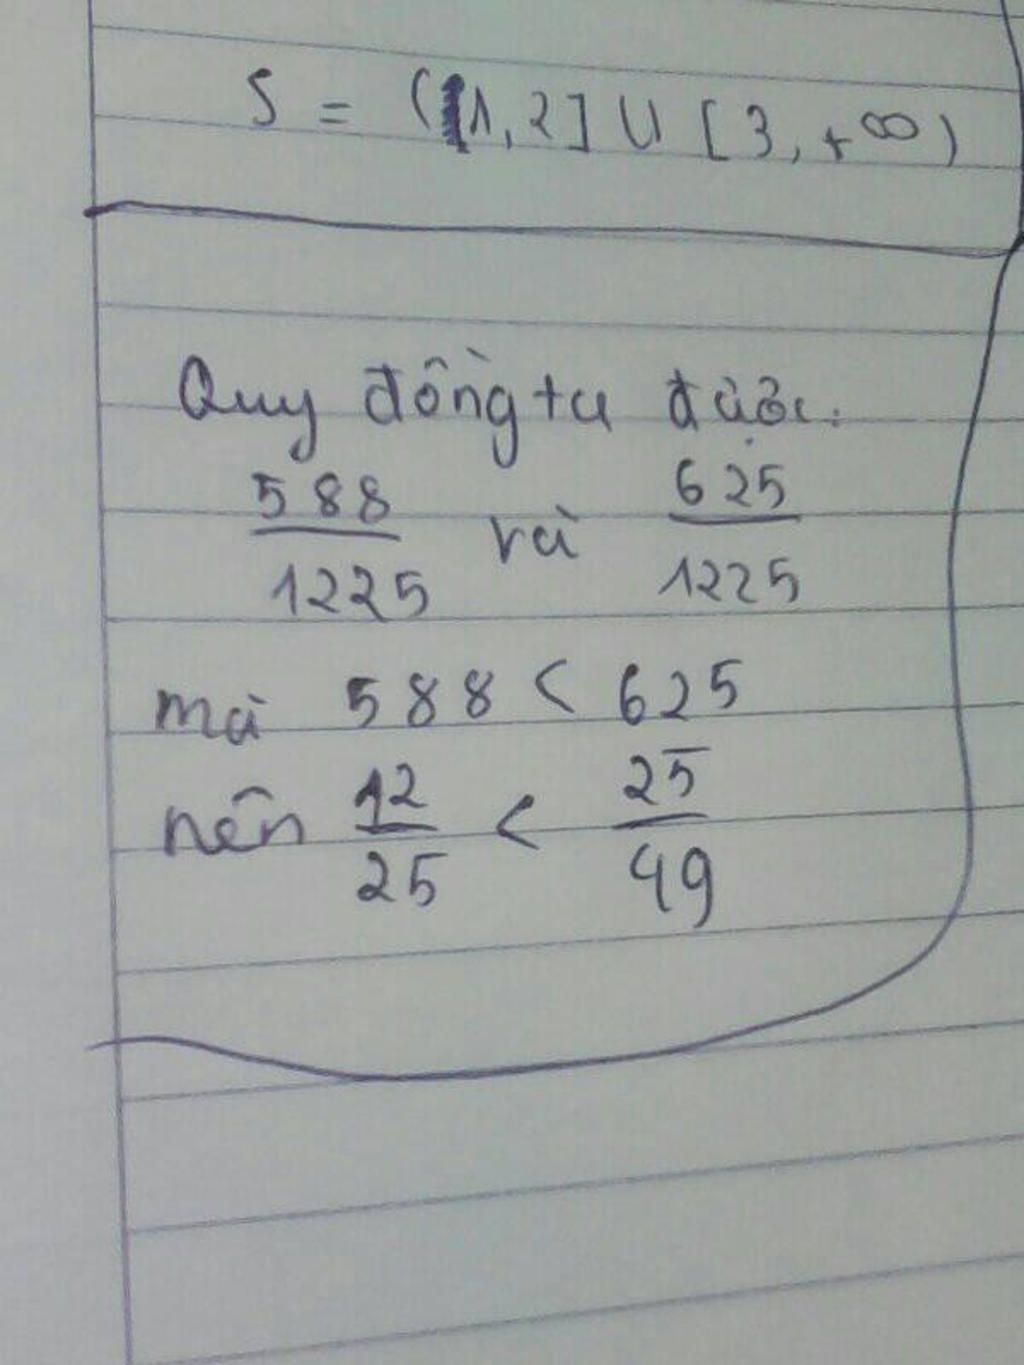 S = (1, 2] ∪ [3, +∞)
Quy đồng ta được:
588/1225 và 625/1225
mà 588 < 625
nên 12/25 < 25/49